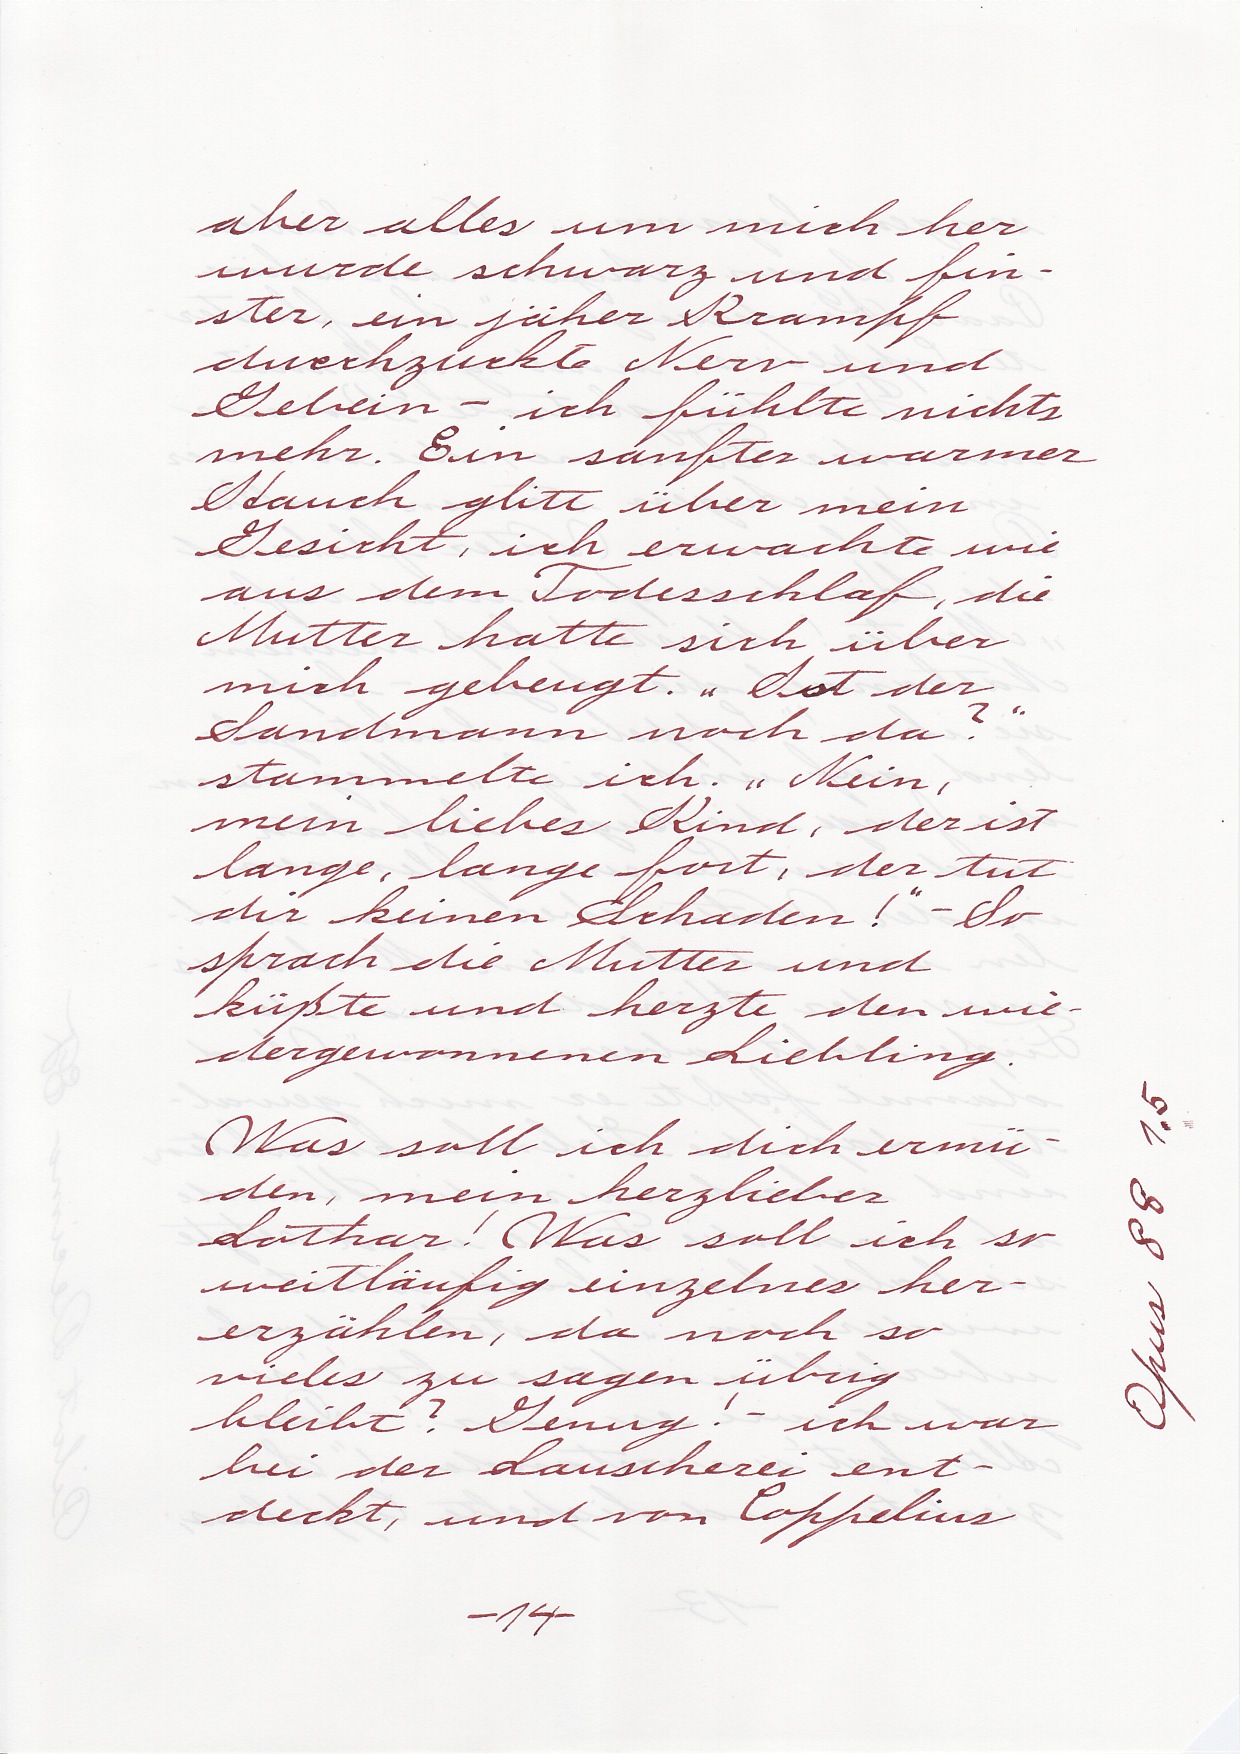 aber alles um mich her
wurde schwarz und fin-
ster, ein jäher Krampf
durchzuckte Nerv und
Gebein - ich fühlte nichts
mehr. Ein sanfter warmer
Hauch glitt über mein
Gesicht, ich erwachte wie
aus dem Todesschlaf, die
Mutter hatte sich über
mich gebeugt. „Ist der
Sandmann noch da?“
stammelte ich. „Nein,
mein liebes Kind, der ist
lange, lange fort, der tut
dir keinen Schaden!“ - So
sprach die Mutter und
küßte und herzte den wie-
dergewonnenen Liebling.
Was soll ich dich ermü-
den, mein herzlieber
Lothar! Was soll ich so
weitläufig einzelnes her-
erzählen, da noch so
vieles zu sagen übrig
bleibt? Genug! - ich war
bei der Lauscherei ent-
deckt, und von Coppelius
-14-
Opus 88 1.5